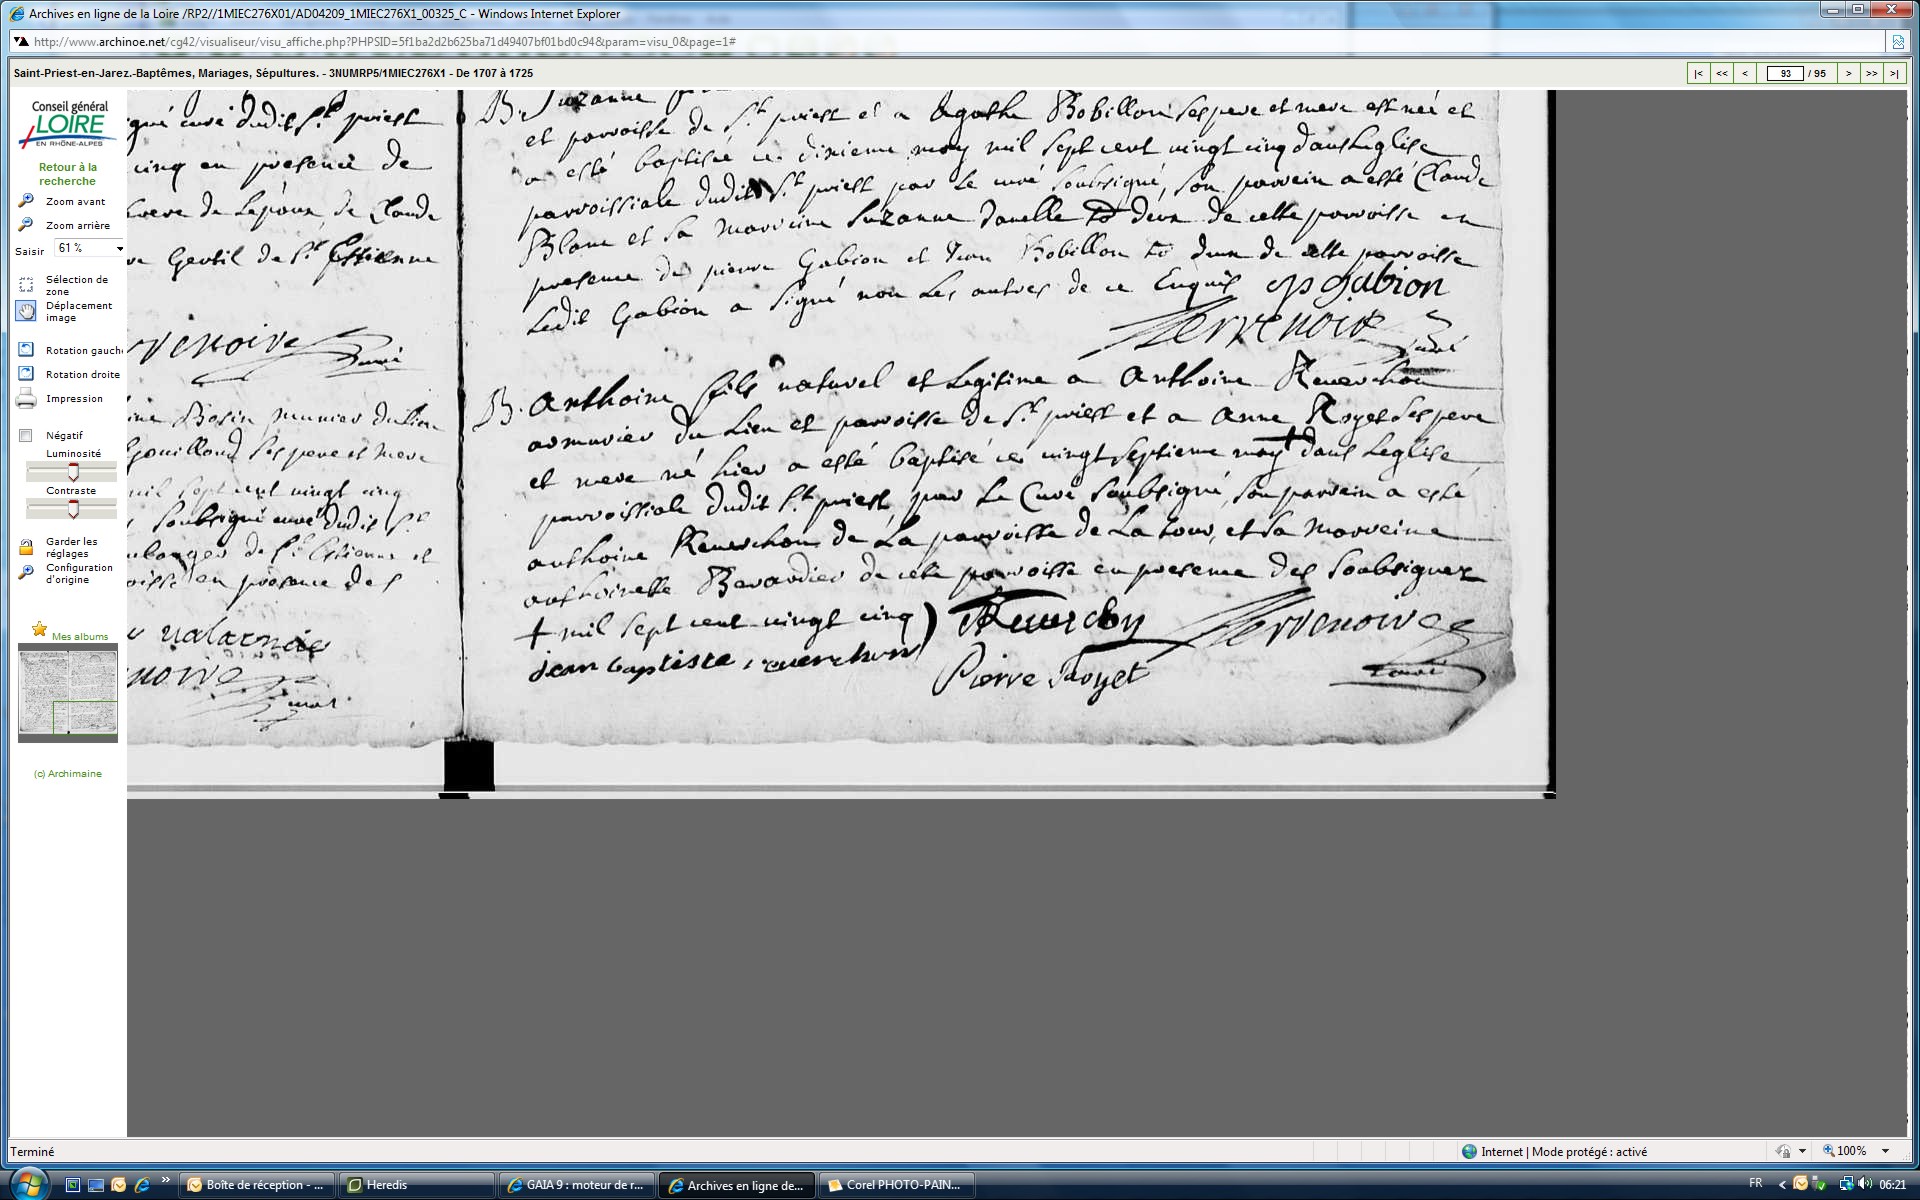 Archives en ligne de la Loire /RP2//1MIEC276X01/AD04209_1MIEC276X1_00325_C - Windows Internet Explorer
http://www.archinoe.net/cg42/visualiseur/visu_affiche.php?PHPSID=5f1ba2d2b625ba71d49407bf01bd0c94&param=visu_0&page=1#
Saint-Priest-en-Jarez.-Baptêmes, Mariages, Sépultures. - 3NUMRP5/1MIEC276X1 - De 1707 à 1725
|< << < 93 / 95 > >> >|
Conseil général
LOIRE
EN RHÔNE-ALPES
Retour à la
recherche
Zoom avant
Zoom arrière
Saisir 61 %
Sélection de
zone
Déplacement
image
Rotation gauche
Rotation droite
Impression
Négatif
Luminosité
Contraste
Garder les
réglages
Configuration
d'origine
Mes albums
(c) Archimaine
curé dudit St priest
cinq en presence de
de Claude
Gentil de St Estienne
munier du lieu
ses pere et mere
mil sept cent vingt cinq
soubsigné curé dudit St
de St Estienne et
en presence des
B. Suzanne
et parroisse de St priest et a Agathe Bobillon ses pere et mere est née et
a esté baptisée ce dixieme may mil sept cent vingt cinq dans Leglise
parroissiale dudit St priest par le curé soubsigné, son parrein a esté Claude
Blanc et sa marreine Suzanne Janelle to deux de cette parroisse en
presence de pierre Gabion et Jean Bobillon to deux de cette parroisse
Ledit Gabion a signé non Les autres de ce Enquis p gabion
Terrenoire curé
B. Anthoine fils naturel et Legitime a Anthoine Reuerchon
armurier du Lieu et parroisse de St priest et a Anne Royet ses pere
et mere né hier a esté baptisé ce vingt septieme may + dans Leglise
parroissiale dudit St priest par Le Curé soubsigné, son parrein a esté
anthoine Reuerchon de La parroisse de La tour, et sa marreine
anthoinette Berardier de cette parroisse en presence des soubsignez
+ mil sept cent vingt cinq) Reuerchon Terrenoire
jean baptiste reuerchon Pierre Royet curé
Terminé
Internet | Mode protégé : activé
100%
Boîte de réception - ...
Heredis
GAIA 9 : moteur de r...
Archives en ligne de...
Corel PHOTO-PAIN...
FR
06:21